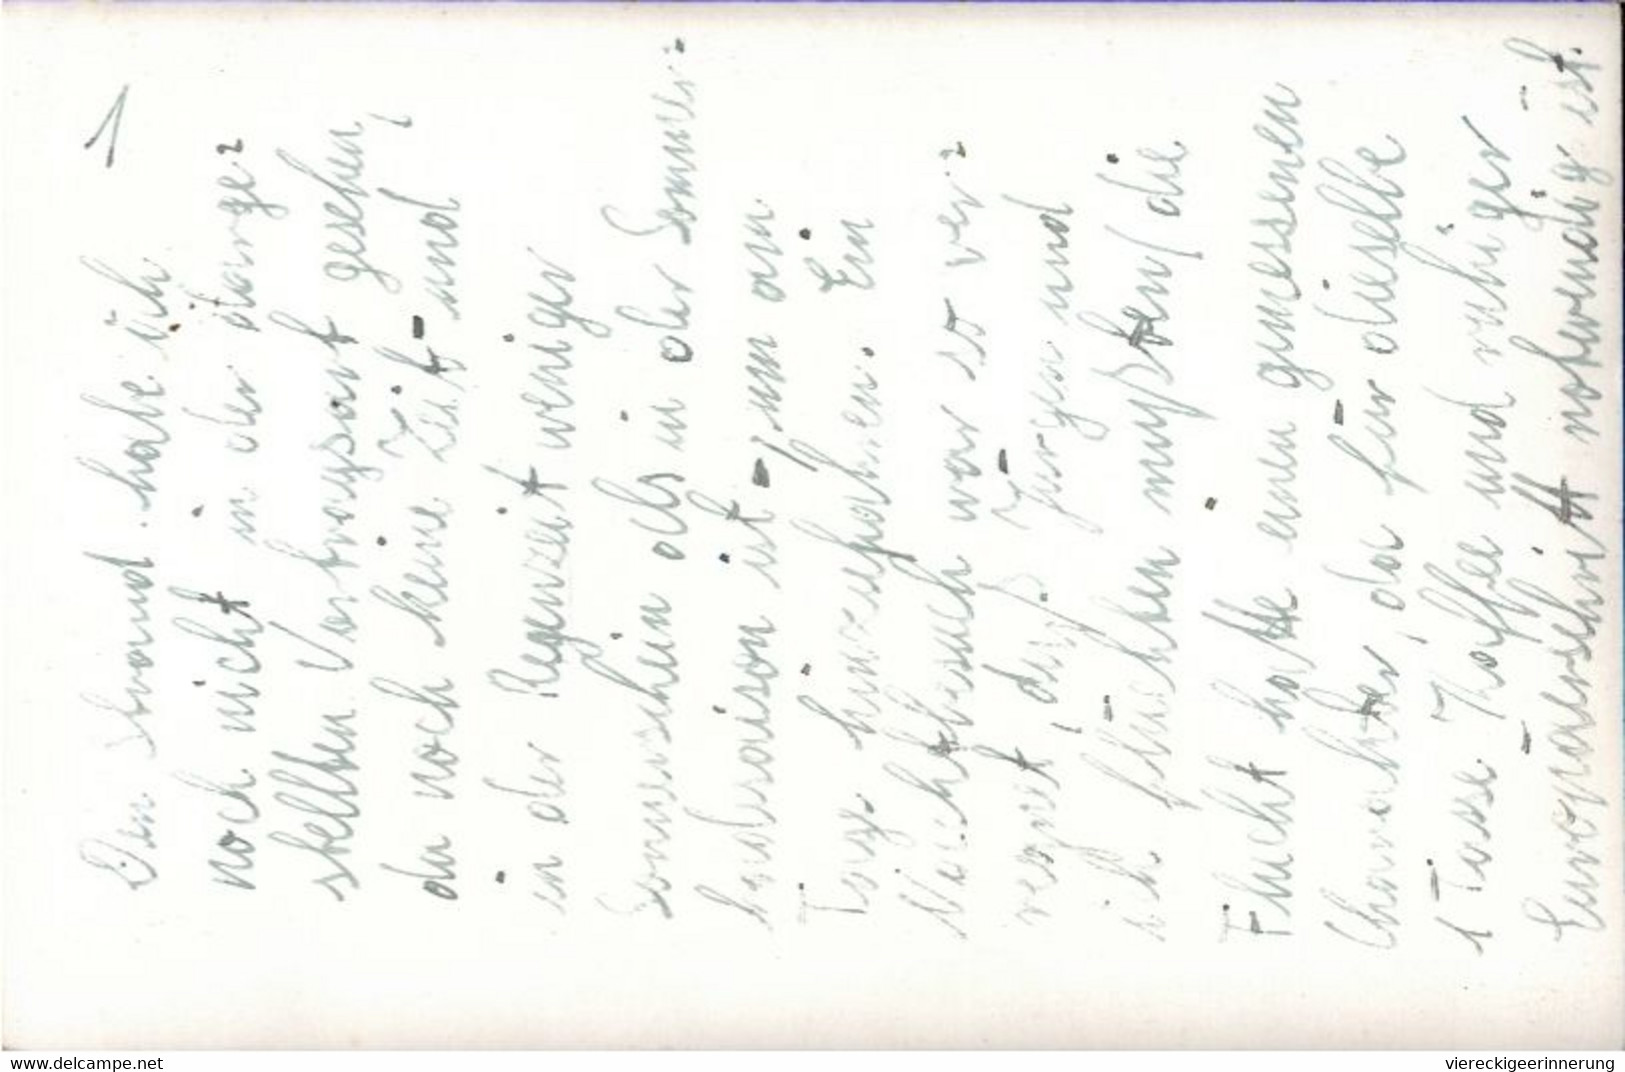 1
Den Strand habe ich
noch nicht in der darge-
stellten Vertragsart gesehen,
da noch keine Zeit - und
in der Regenzeit weniger
Sonnenschein als in der Sommer-
badesaison ist -, um am
Tage hinzufahren. Ein
Nachtbesuch war so ver-
regnet, daß Jürgen und
ich flüchten mußten (die
Flucht hatte einen gemessenen
Charakter, da für dieselbe
1 Tasse Kaffee und ruhiger
Europäerschritt notwendig ist.
www.delcampe.net
viereckigeerinnerung